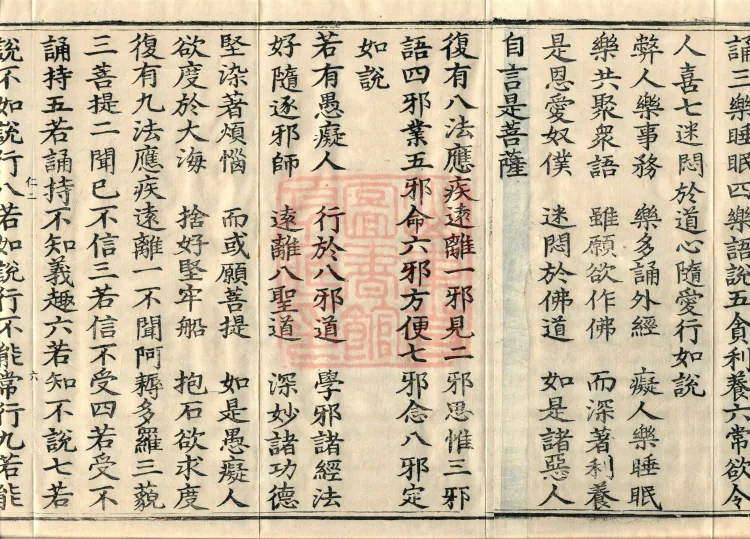 誦三樂睡眠四樂語說五貪利養六常欲令
人喜七迷悶於道心隨愛行如說
弊人樂事務　樂多誦外經　癡人樂睡眠
樂共聚衆語　雖願欲作佛　而深著利養
是恩愛奴僕　迷悶於佛道　如是諸惡人
自言是菩薩
復有八法應疾遠離一邪見二邪思惟三邪
語四邪業五邪命六邪方便七邪念八邪定
如說
若有愚癡人　行於八邪道　學邪諸經法
好隨逐邪師　遠離八聖道　深妙諸功德
堅染著煩惱　而或願菩提　如是愚癡人
欲度於大海　捨好堅牢船　抱石欲求度
復有九法應疾遠離一不聞阿耨多羅三藐
三菩提二聞已不信三若信不受四若受不
誦持五若誦持不知義趣六若知不說七若
仁二　六
說不如說行八若如說行不能常行九若能